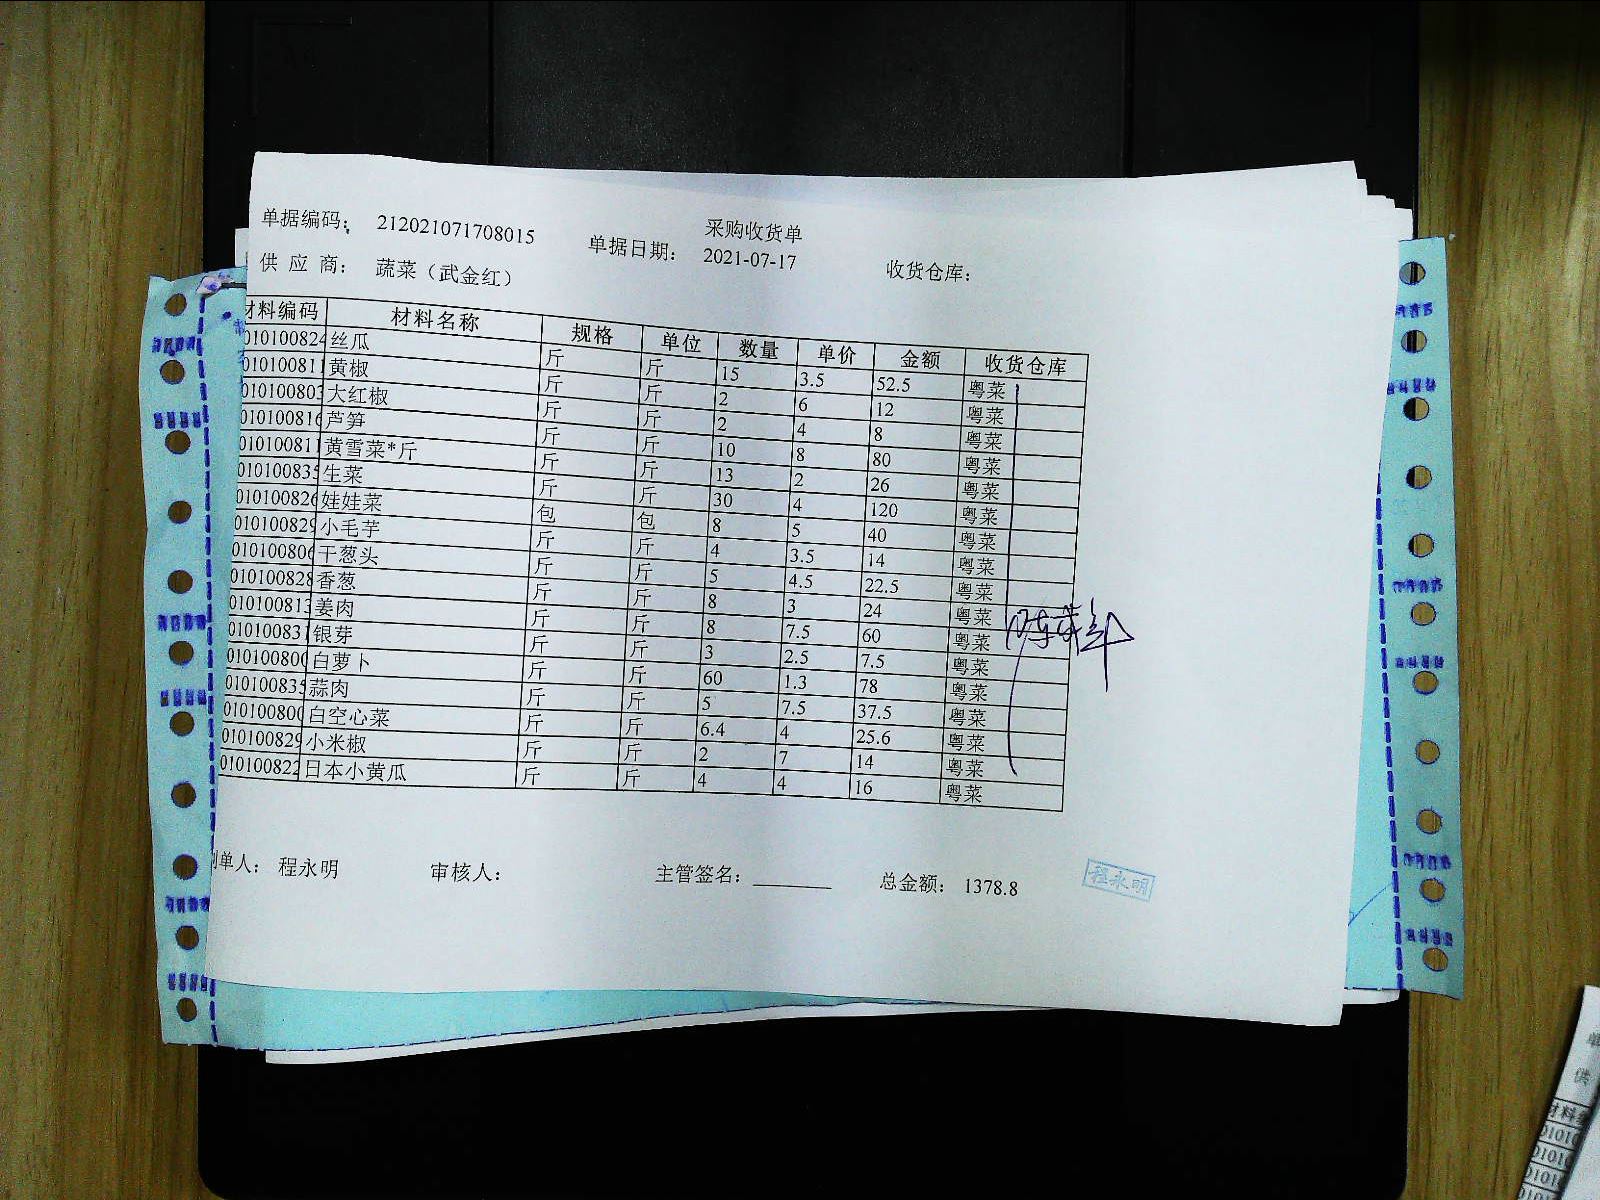 采购收货单
单据编码： 212021071708015 单据日期： 2021-07-17 收货仓库：
供 应 商： 蔬菜（武金红）
材料编码 材料名称 规格 单位 数量 单价 金额 收货仓库
010100824 丝瓜 斤 斤 15 3.5 52.5 粤菜
010100811 黄椒 斤 斤 2 6 12 粤菜
010100803 大红椒 斤 斤 2 4 8 粤菜
010100816 芦笋 斤 斤 10 8 80 粤菜
010100811 黄雪菜*斤 斤 斤 13 2 26 粤菜
010100835 生菜 斤 斤 30 4 120 粤菜
010100826 娃娃菜 包 包 8 5 40 粤菜
010100829 小毛芋 斤 斤 4 3.5 14 粤菜
010100806 干葱头 斤 斤 5 4.5 22.5 粤菜
010100828 香葱 斤 斤 8 3 24 粤菜
010100813 姜肉 斤 斤 8 7.5 60 粤菜
010100831 银芽 斤 斤 3 2.5 7.5 粤菜
010100800 白萝卜 斤 斤 60 1.3 78 粤菜
010100835 蒜肉 斤 斤 5 7.5 37.5 粤菜
010100800 白空心菜 斤 斤 6.4 4 25.6 粤菜
010100829 小米椒 斤 斤 2 7 14 粤菜
010100822 日本小黄瓜 斤 斤 4 4 16 粤菜
制单人： 程永明 审核人： 主管签名： 总金额： 1378.8
程永明